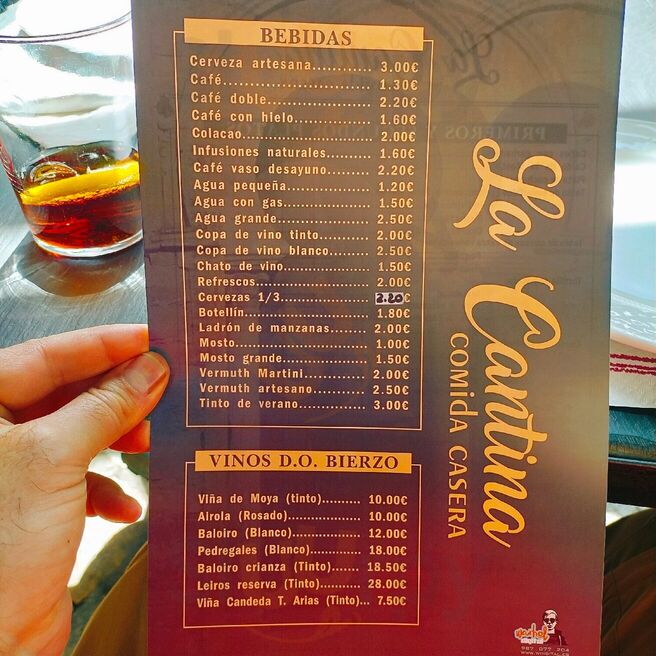 BEBIDAS
Cerveza artesana............ 3.00€
Café.................... 1.30€
Café doble................. 2.20€
Café con hielo.............. 1.60€
Colacao.................... 2.00€
Infusiones naturales........ 1.60€
Café vaso desayuno.......... 2.20€
Agua pequeña................ 1.20€
Agua con gas................ 1.50€
Agua grande................. 2.50€
Copa de vino tinto.......... 2.00€
Copa de vino blanco......... 2.50€
Chato de vino............... 1.50€
Refrescos................... 2.00€
Cervezas 1/3................ 2.20€
Botellín.................... 1.80€
Ladrón de manzanas.......... 2.00€
Mosto....................... 1.00€
Mosto grande................ 1.50€
Vermuth Martini............. 2.00€
Vermuth artesano............ 2.50€
Tinto de verano............. 3.00€
VINOS D.O. BIERZO
Viña de Moya (tinto).......... 10.00€
Airola (Rosado)................. 10.00€
Baloiro (Blanco)................ 12.00€
Pedregales (Blanco)............ 18.00€
Baloiro crianza (Tinto)....... 18.50€
Leiros reserva (Tinto)........ 28.00€
Viña Candeda T. Arias (Tinto)... 7.50€
La Cantina
COMIdA CASERA
987 077 204